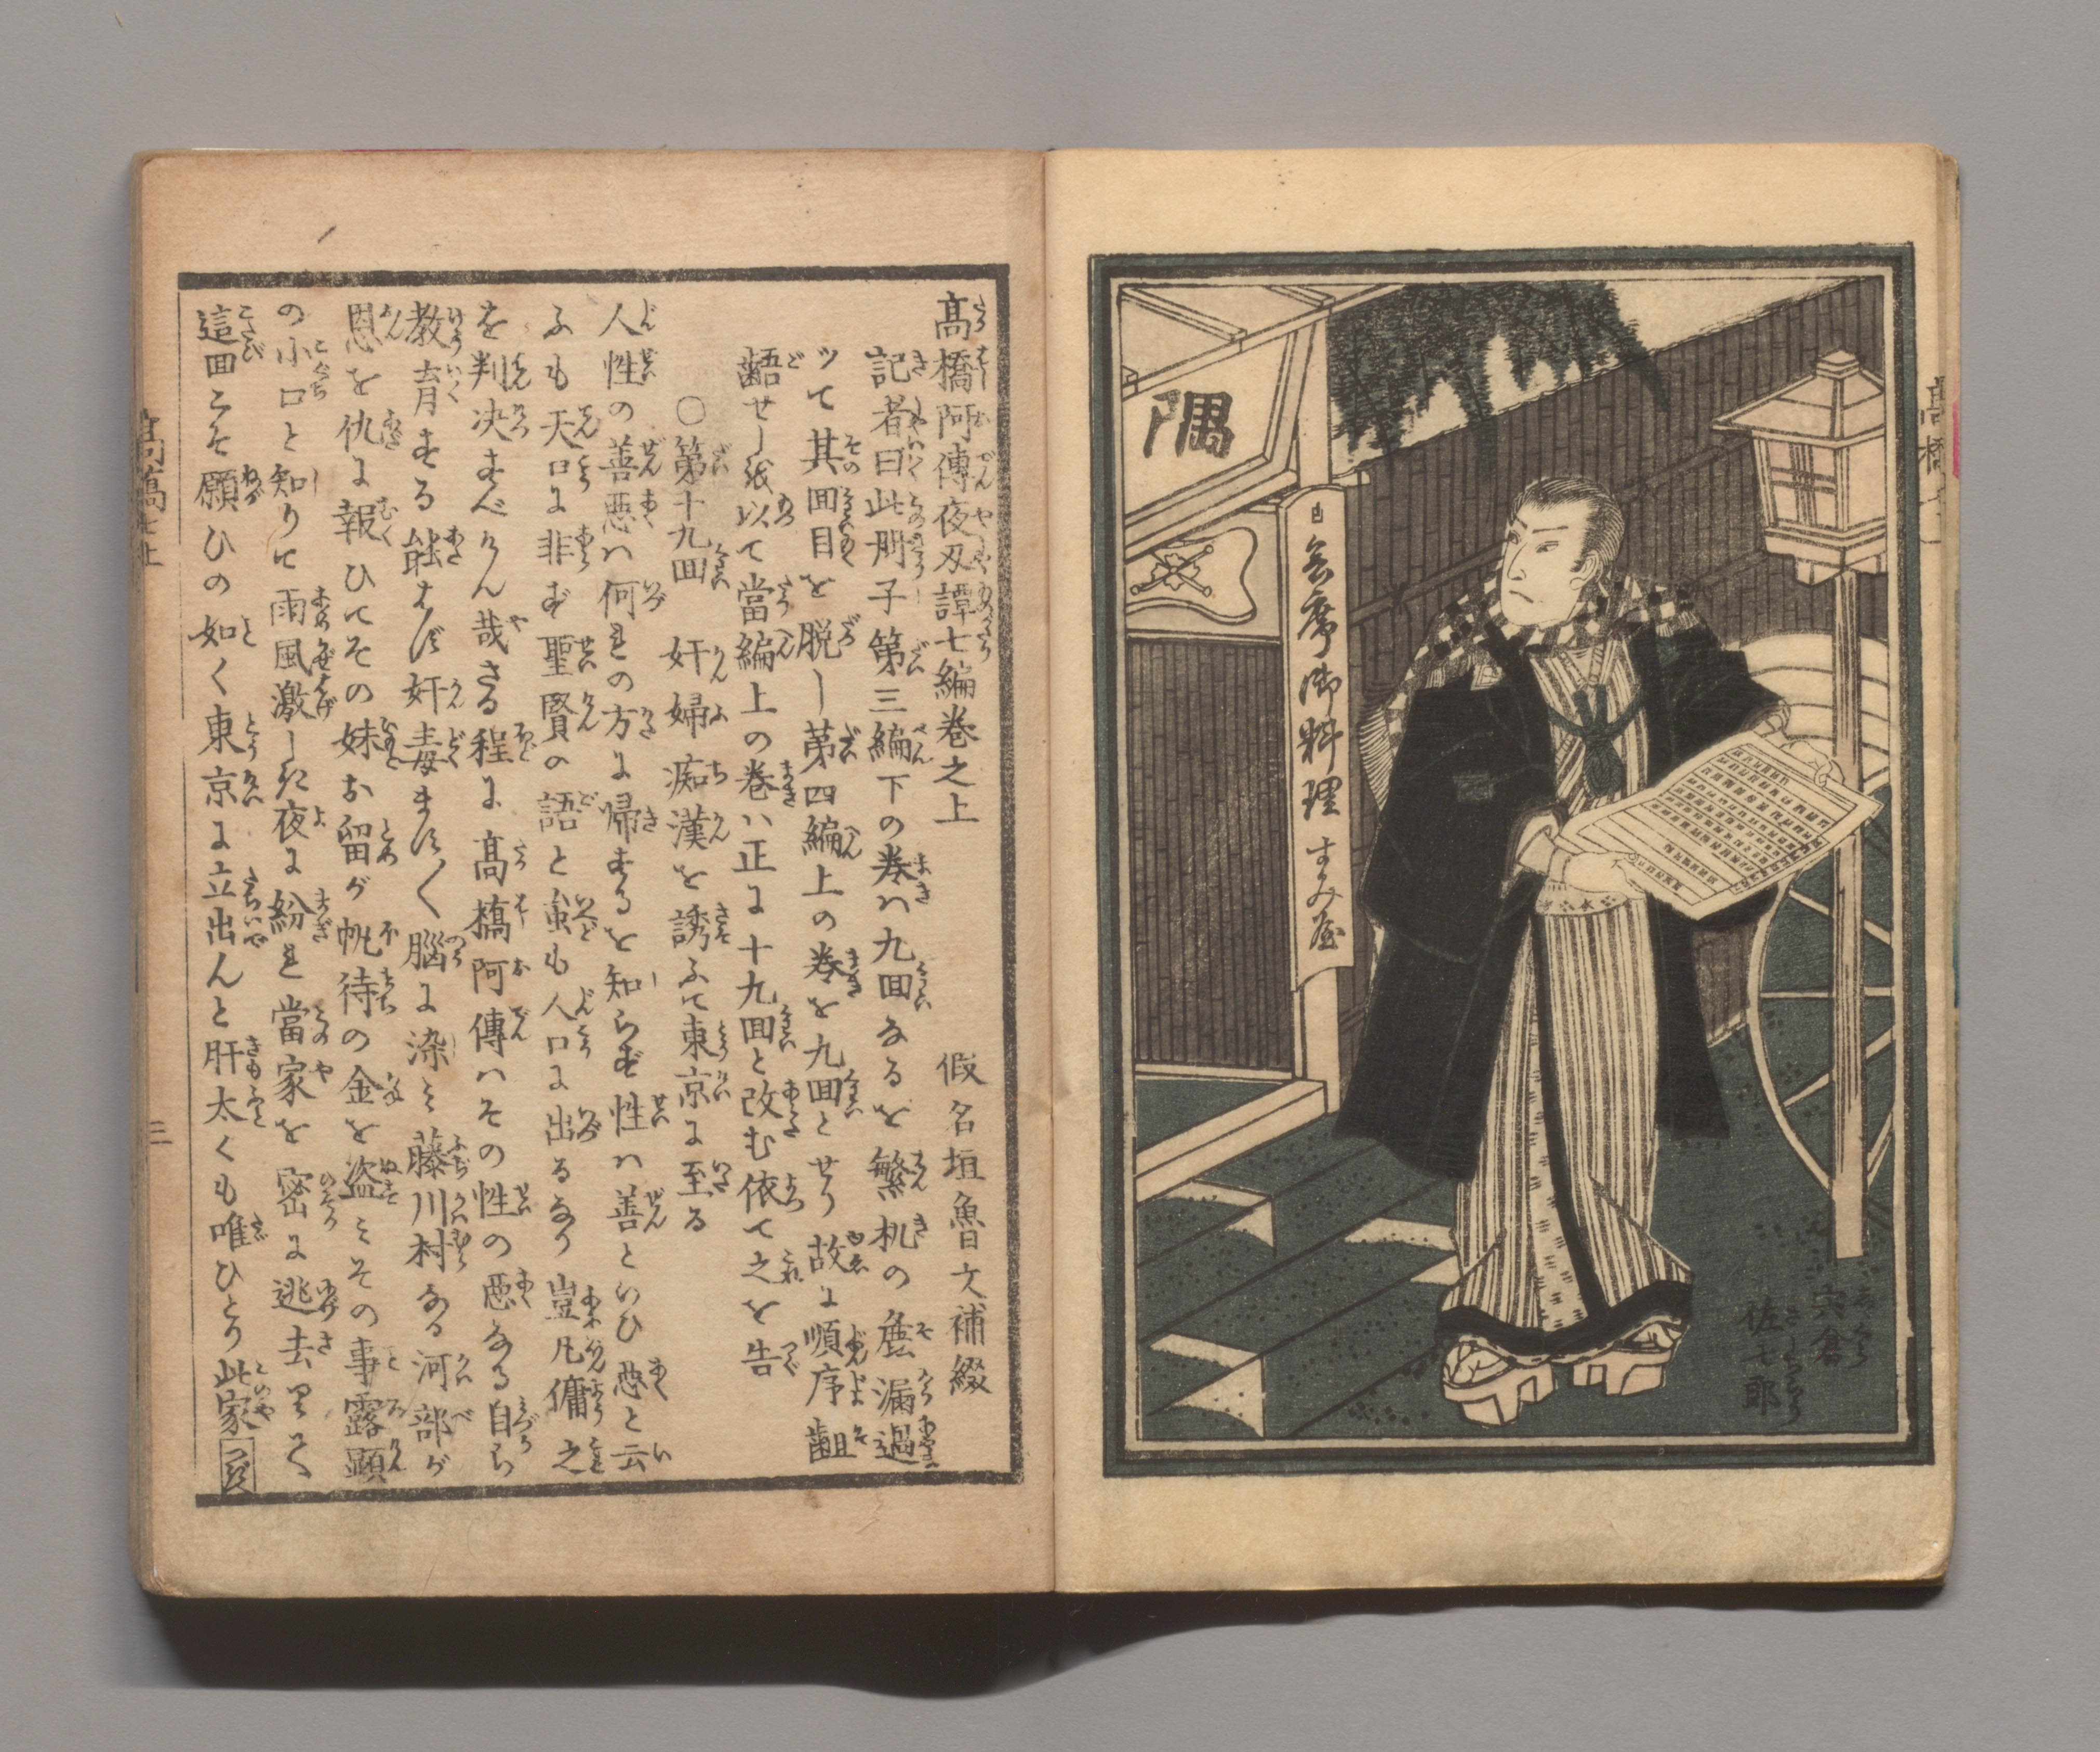 隅
会席御料理 すみ屋
宍倉
佐七郎
髙橋阿傳夜刄譚七編巻之上
假名垣魯文補綴
記者曰此冊子第三編下の巻ハ九回なるを繁机の麁漏過
ッて其回目を脱し第四編上の巻を九回とせり故に順序齟
齬せし越以て當編上の巻ハ正に十九回と改む依て之を告
〇第十九回 奸婦痴漢を誘ふて東京に至る
人性の善悪ハ何れの方に帰するを知らず性ハ善といひ悪と云
ふも天口に非ず聖賢の語と雖も人口に出るなり豈凡傭之
を判决すべけん哉さる程に髙橋阿傳ハその性の悪なる自ら
教育する能はず奸毒ます〱腦に染み藤川村なる河部が
恩を仇に報ひてその妹お留が帆待の金を盗みその事露顕
の小口と知りて雨風激した夜に紛れ當家を密に逃去りて
這回こそ願ひの如く東京に立出んと肝太くも唯ひとり此家
つぎ
三